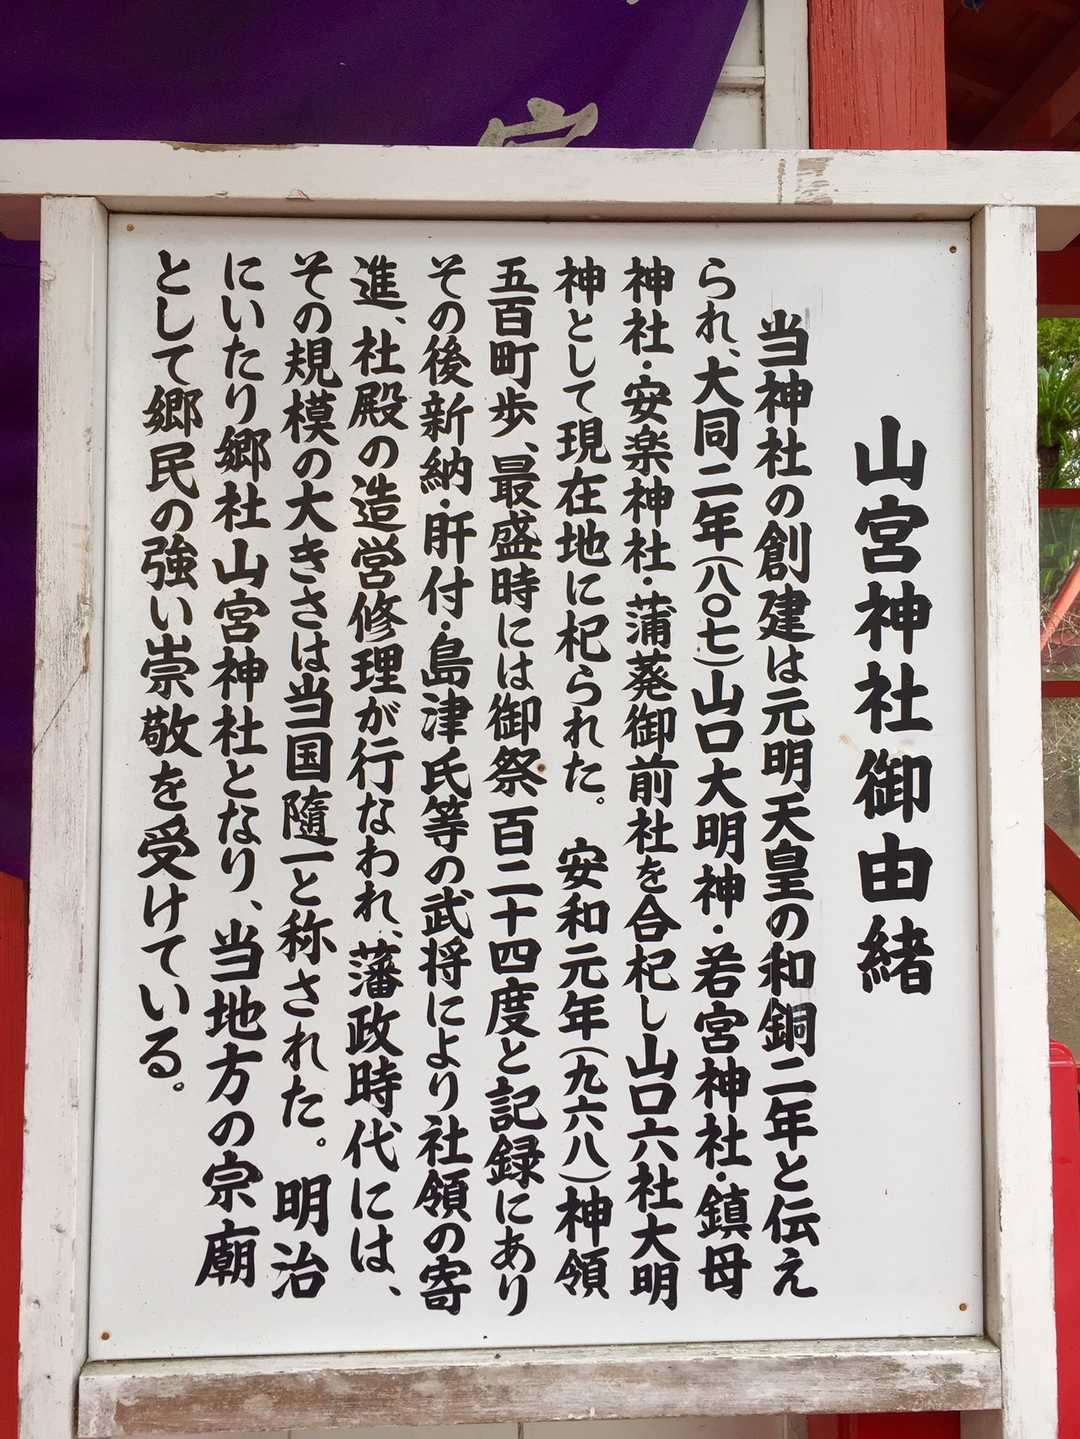 山宮神社御由緒
当神社の創建は元明天皇の和銅二年と伝え
られ、大同二年(八〇七)山口大明神・若宮神社・鎮母
神社・安楽神社・蒲葵御前社を合杞し山口六社大明
神として現在地に杞られた。安和元年(九六八)神領
五百町歩、最盛時には御祭百二十四度と記録にあり
その後新納・肝付・島津氏等の武将により社領の寄
進、社殿の造営修理が行なわれ、藩政時代には、
その規模の大きさは当国随一と称された。明治
にいたり郷社山宮神社となり、当地方の宗廟
として郷民の強い崇敬を受けている。